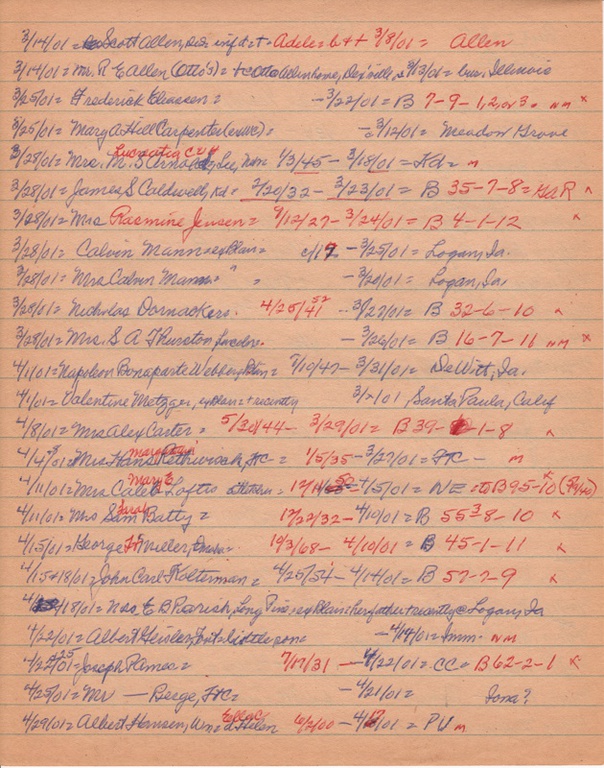 3/14/01 = Scott Allen, inf d + = Adele = b + + 3/8/01 = Allen
3/14/01 = Mr. R E Allen (Otto's) = + Otto Allen home, 3/13/01 = bur. Illinois
3/25/01 = Frederick Eliassen = - 3/22/01 = B 7-9-1,2, or 3. nm x
3/25/01 = Mary A Hill Carpenter = 3/12/01 = Meadow Grove
3/28/01 = Mrs. M. S Arnold, Lucretia 1/3/45 - 3/18/01 = Kd = m
3/28/01 = James S Caldwell, Kd = 2/20/32 - 3/23/01 = B 35-7-8 = GAR x
3/28/01 = Mrs Rasmine Jensen = 9/12/27 - 3/24/01 = B 4-1-12 x
3/28/01 = Calvin Mann = ex Plain = c/17 - 3/25/01 = Logan, Ia.
3/28/01 = Mrs Calvin Mann = " = - 3/20/01 = Logan, Ia.
3/28/01 = Nicholas Dornackers. 4/25/41 52 - 3/27/01 = B 32-6-10 x
3/28/01 = Mrs. S A Thurston - 3/26/01 = B 16-7-11 nm x
4/1/01 = Napoleon Bonaparte Webber, Plain = 7/10/47 - 3/31/01 = DeWitt, Ia.
4/1/01 = Valentine Metzger, ex Plain + recently Santa Paula, Calif
4/8/01 = Mrs Alex Carter = 5/30/44 - 3/29/01 = B 39-1-8 x
Mrs Hans Rethwisch, HC = 1/5/35 - 3/27/01 = HC - m
4/11/01 = Mrs. Caleb Loftis Mary E 50 - 4/5/01 = NE = to B 95-10 x
4/11/01 = Mrs Sam Batty = Sarah 12/22/32 - 4/10/01 = B 55-8-10 x
4/15/01 = George Miller, 10/3/68 - 4/10/01 = B 45-1-11 x
4/15+18/01 = John Carl Kolterman = 4/25/54 - 4/14/01 = B 57-7-9 x
4/18/01 = Mrs. E B Parish, Long Pine, ex Plain = her father + recently @ Logan, Ia
4/22/01 = Albert Heisler, Fritz little son = - 4/14/01 = Imm. nm
Joseph Pames = 7/17/31 - 4/22/01 = CC = B 62-2-1 x
4/25/01 = Mr — Berge, HC = - 4/21/01 = Iona?
4/29/01 = Albert Hansen, Wm = & Helen 6/2/00 - 4/17/01 = PV m